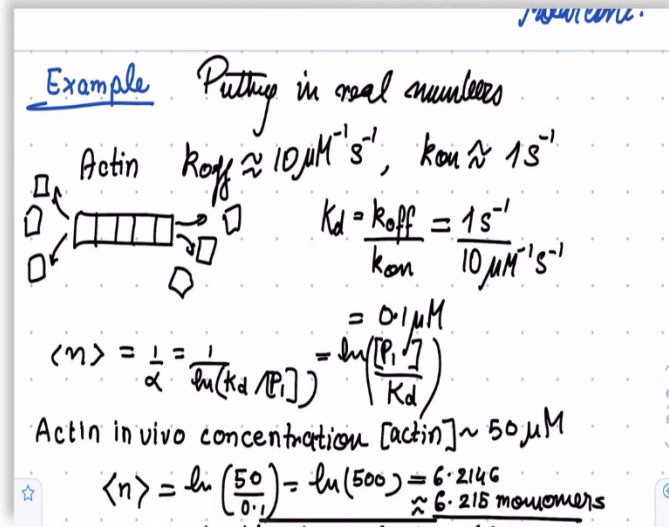 Example Putting in real numbers
Actin koff ≈ 10 μM⁻¹s⁻¹, kon ≈ 1s⁻¹
Kd = koff/kon = 1s⁻¹/10 μM⁻¹s⁻¹
= 0.1μM
<n> = 1/α = 1/ln(Kd/[P₁]) = ln([P₁]/Kd)
Actin in vivo concentration [actin] ~ 50 μM
<n> = ln (50/0.1) = ln(500) = 6.2146
≈ 6.215 monomers